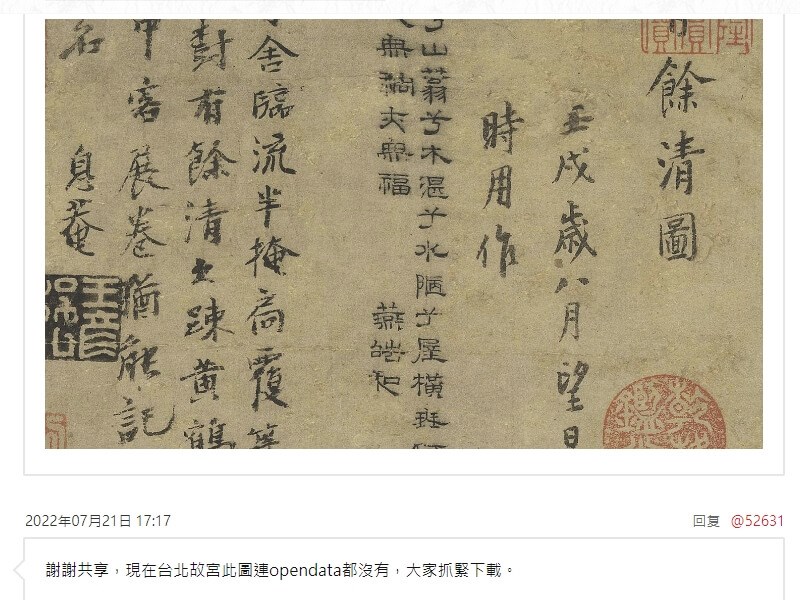 餘清圖
壬戌歲八月望日
時用作
山蓊兮木湛兮水陋兮屋橫
無禍亦無福 燕皓和
舍臨流半掩扃覆
對有餘清土疎黃鶴
中客展卷猶能記
名 息菴
2022年07月21日 17:17
回复 @52631
謝謝共享，現在台北故宮此圖連opendata都沒有，大家抓緊下載。